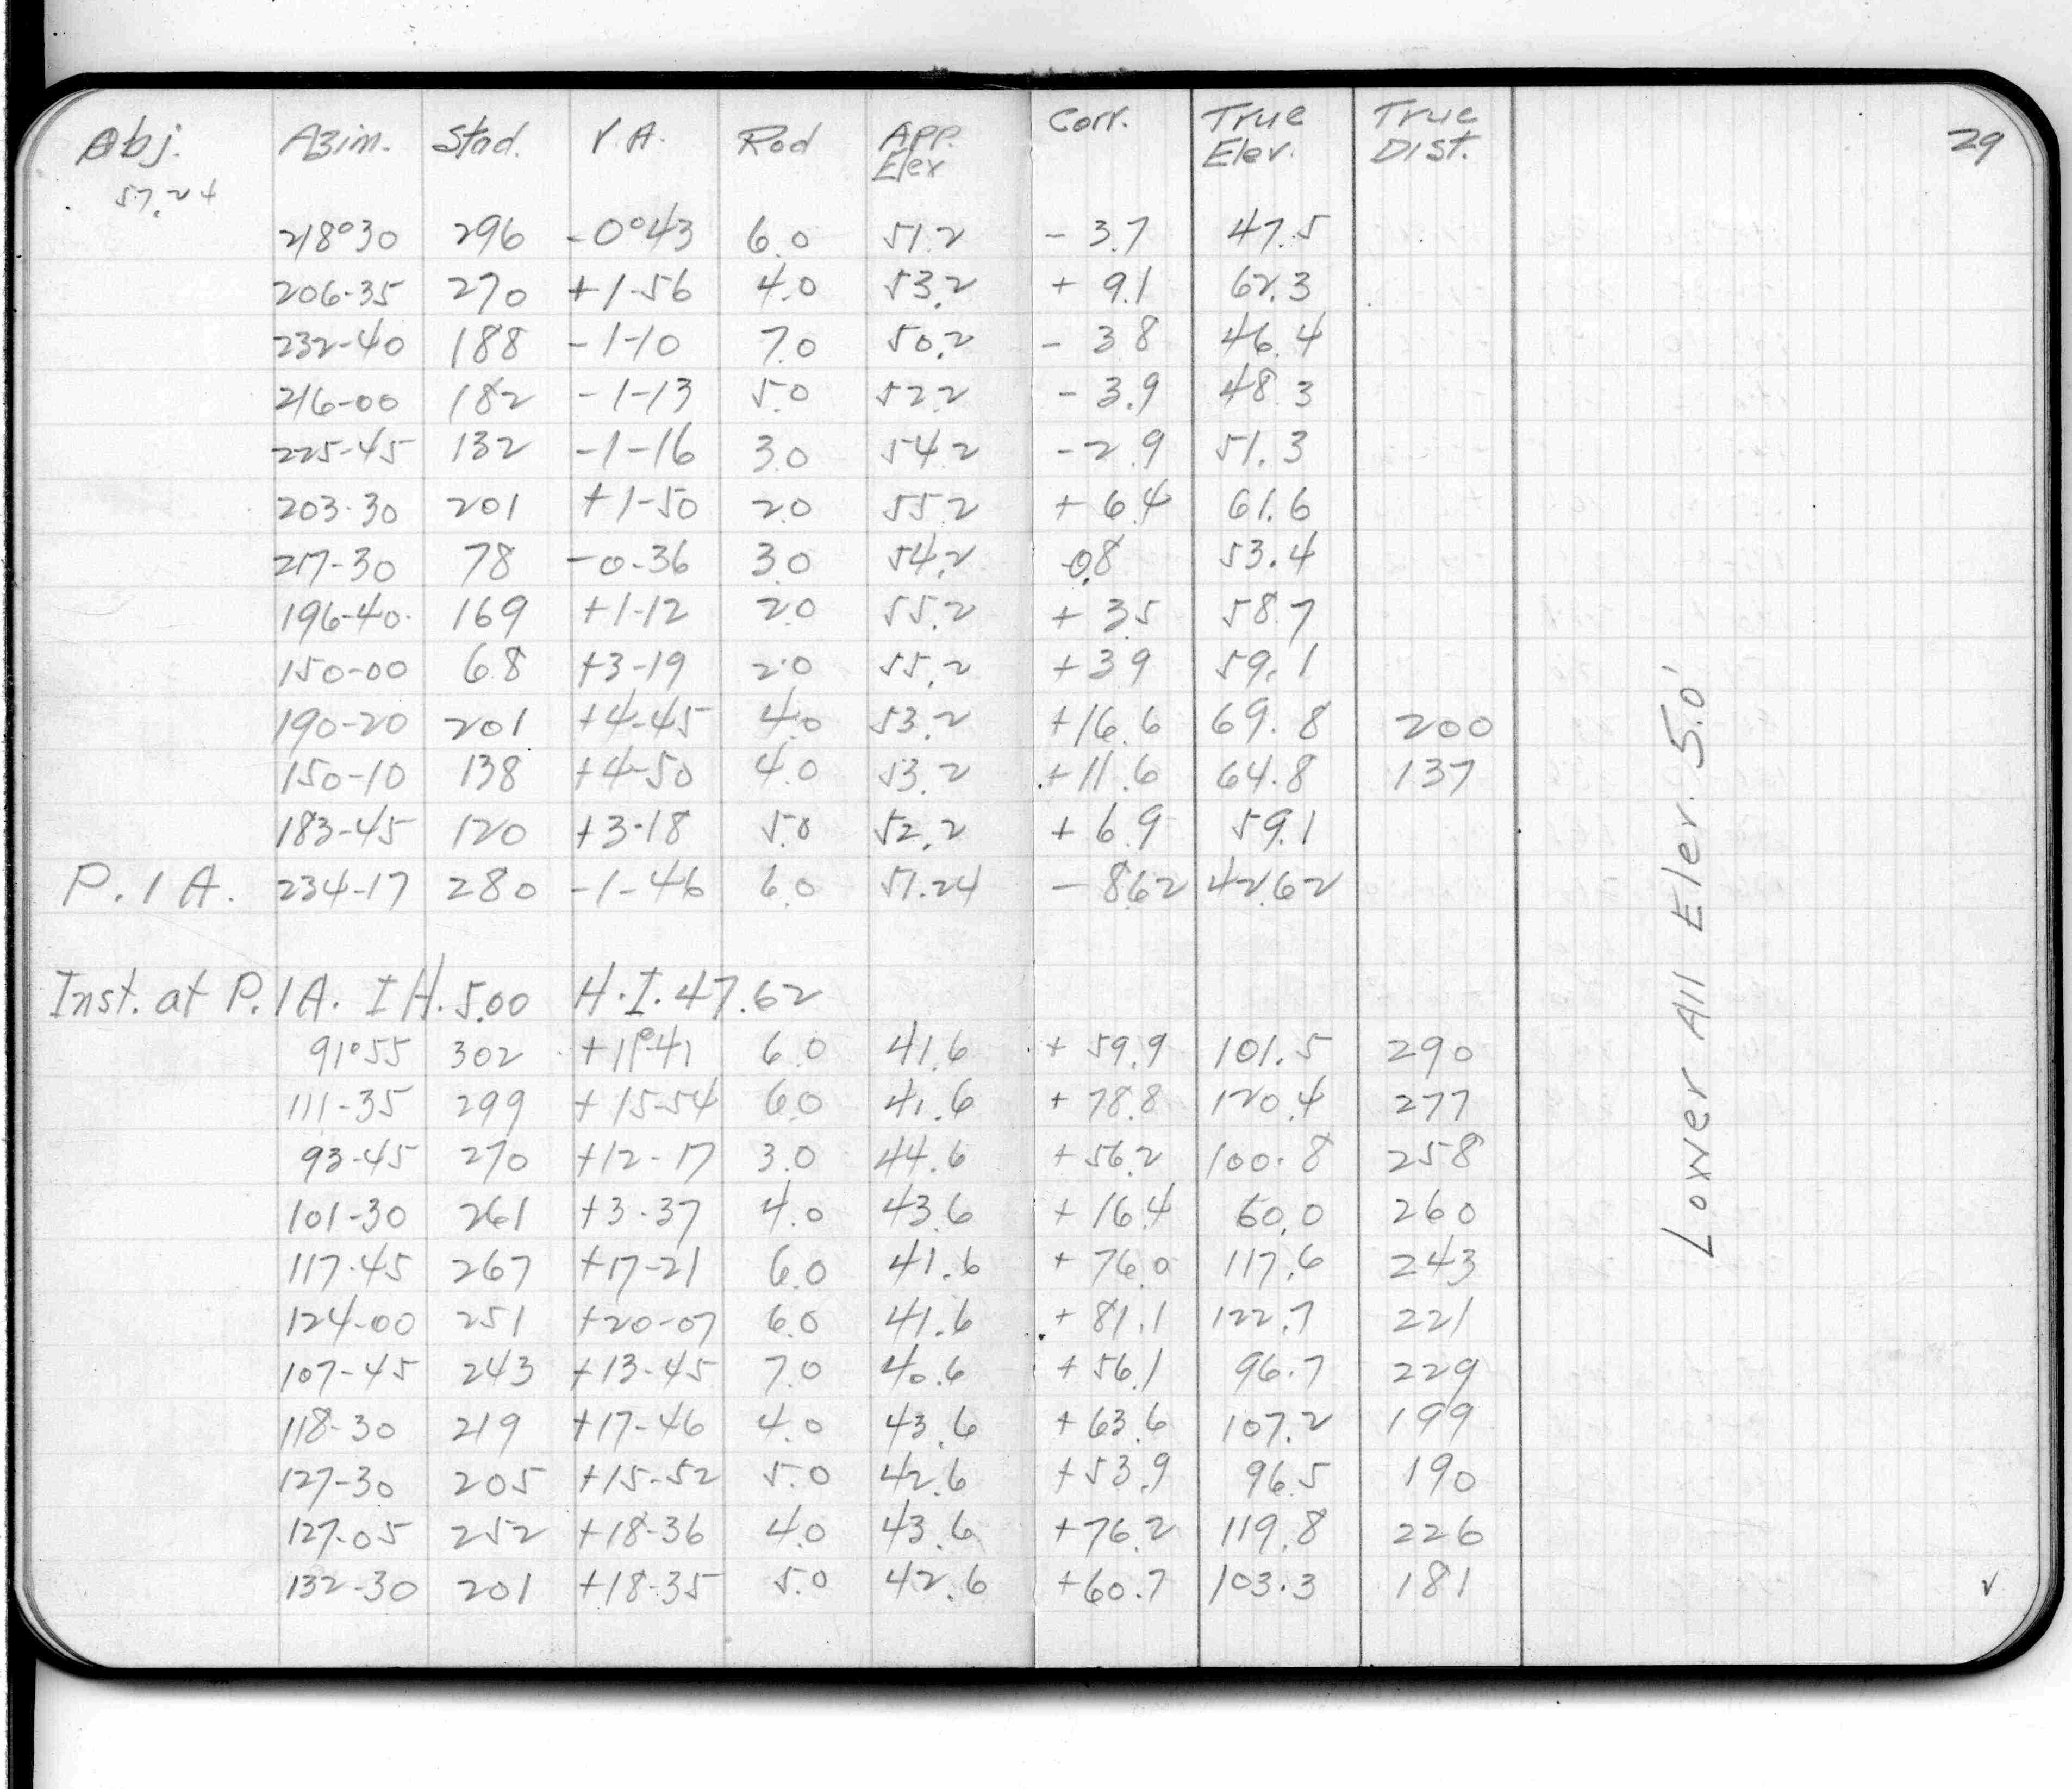 Obj. Azim. Stad. V.A. Rod App. Elev Corr. True Elev. True Dist. 29
57.24
218°30 296 -0°43 6.0 51.2 - 3.7 47.5
206-35 270 +1-56 4.0 53.2 + 9.1 62.3
232-40 188 -1-10 7.0 50.2 - 3.8 46.4
216-00 182 -1-13 5.0 52.2 - 3.9 48.3
225-45 132 -1-16 3.0 54.2 -2.9 51.3
203-30 201 +1-50 2.0 55.2 + 6.4 61.6
217-30 78 -0-36 3.0 54.2 -0.8 53.4
196-40 169 +1-12 2.0 55.2 + 3.5 58.7
150-00 68 +3-19 2.0 55.2 + 3.9 59.1
190-20 201 +4-45 4.0 53.2 +16.6 69.8 200
150-10 138 +4-50 4.0 53.2 +11.6 64.8 137
183-45 120 +3-18 5.0 52.2 + 6.9 59.1
P.1A. 234-17 280 -1-46 6.0 51.24 - 8.62 42.62
Inst. at P.1A. I H. 5.00 H.I. 47.62
91°55 302 +11°41 6.0 41.6 + 59.9 101.5 290
111-35 299 +15-54 6.0 41.6 + 78.8 120.4 277
93-45 270 +12-17 3.0 44.6 + 56.2 100.8 258
101-30 261 +3-37 4.0 43.6 + 16.4 60.0 260
117-45 267 +17-21 6.0 41.6 + 76.0 117.6 243
124-00 251 +20-07 6.0 41.6 + 81.1 122.7 221
107-45 243 +13-45 7.0 40.6 + 56.1 96.7 229
118-30 219 +17-46 4.0 43.6 + 63.6 107.2 199
127-30 205 +15-52 5.0 42.6 +53.9 96.5 190
127-05 252 +18-36 4.0 43.6 +76.2 119.8 226
132-30 201 +18-35 5.0 42.6 +60.7 103.3 181 ✓
Lower All Elev. 5.0'